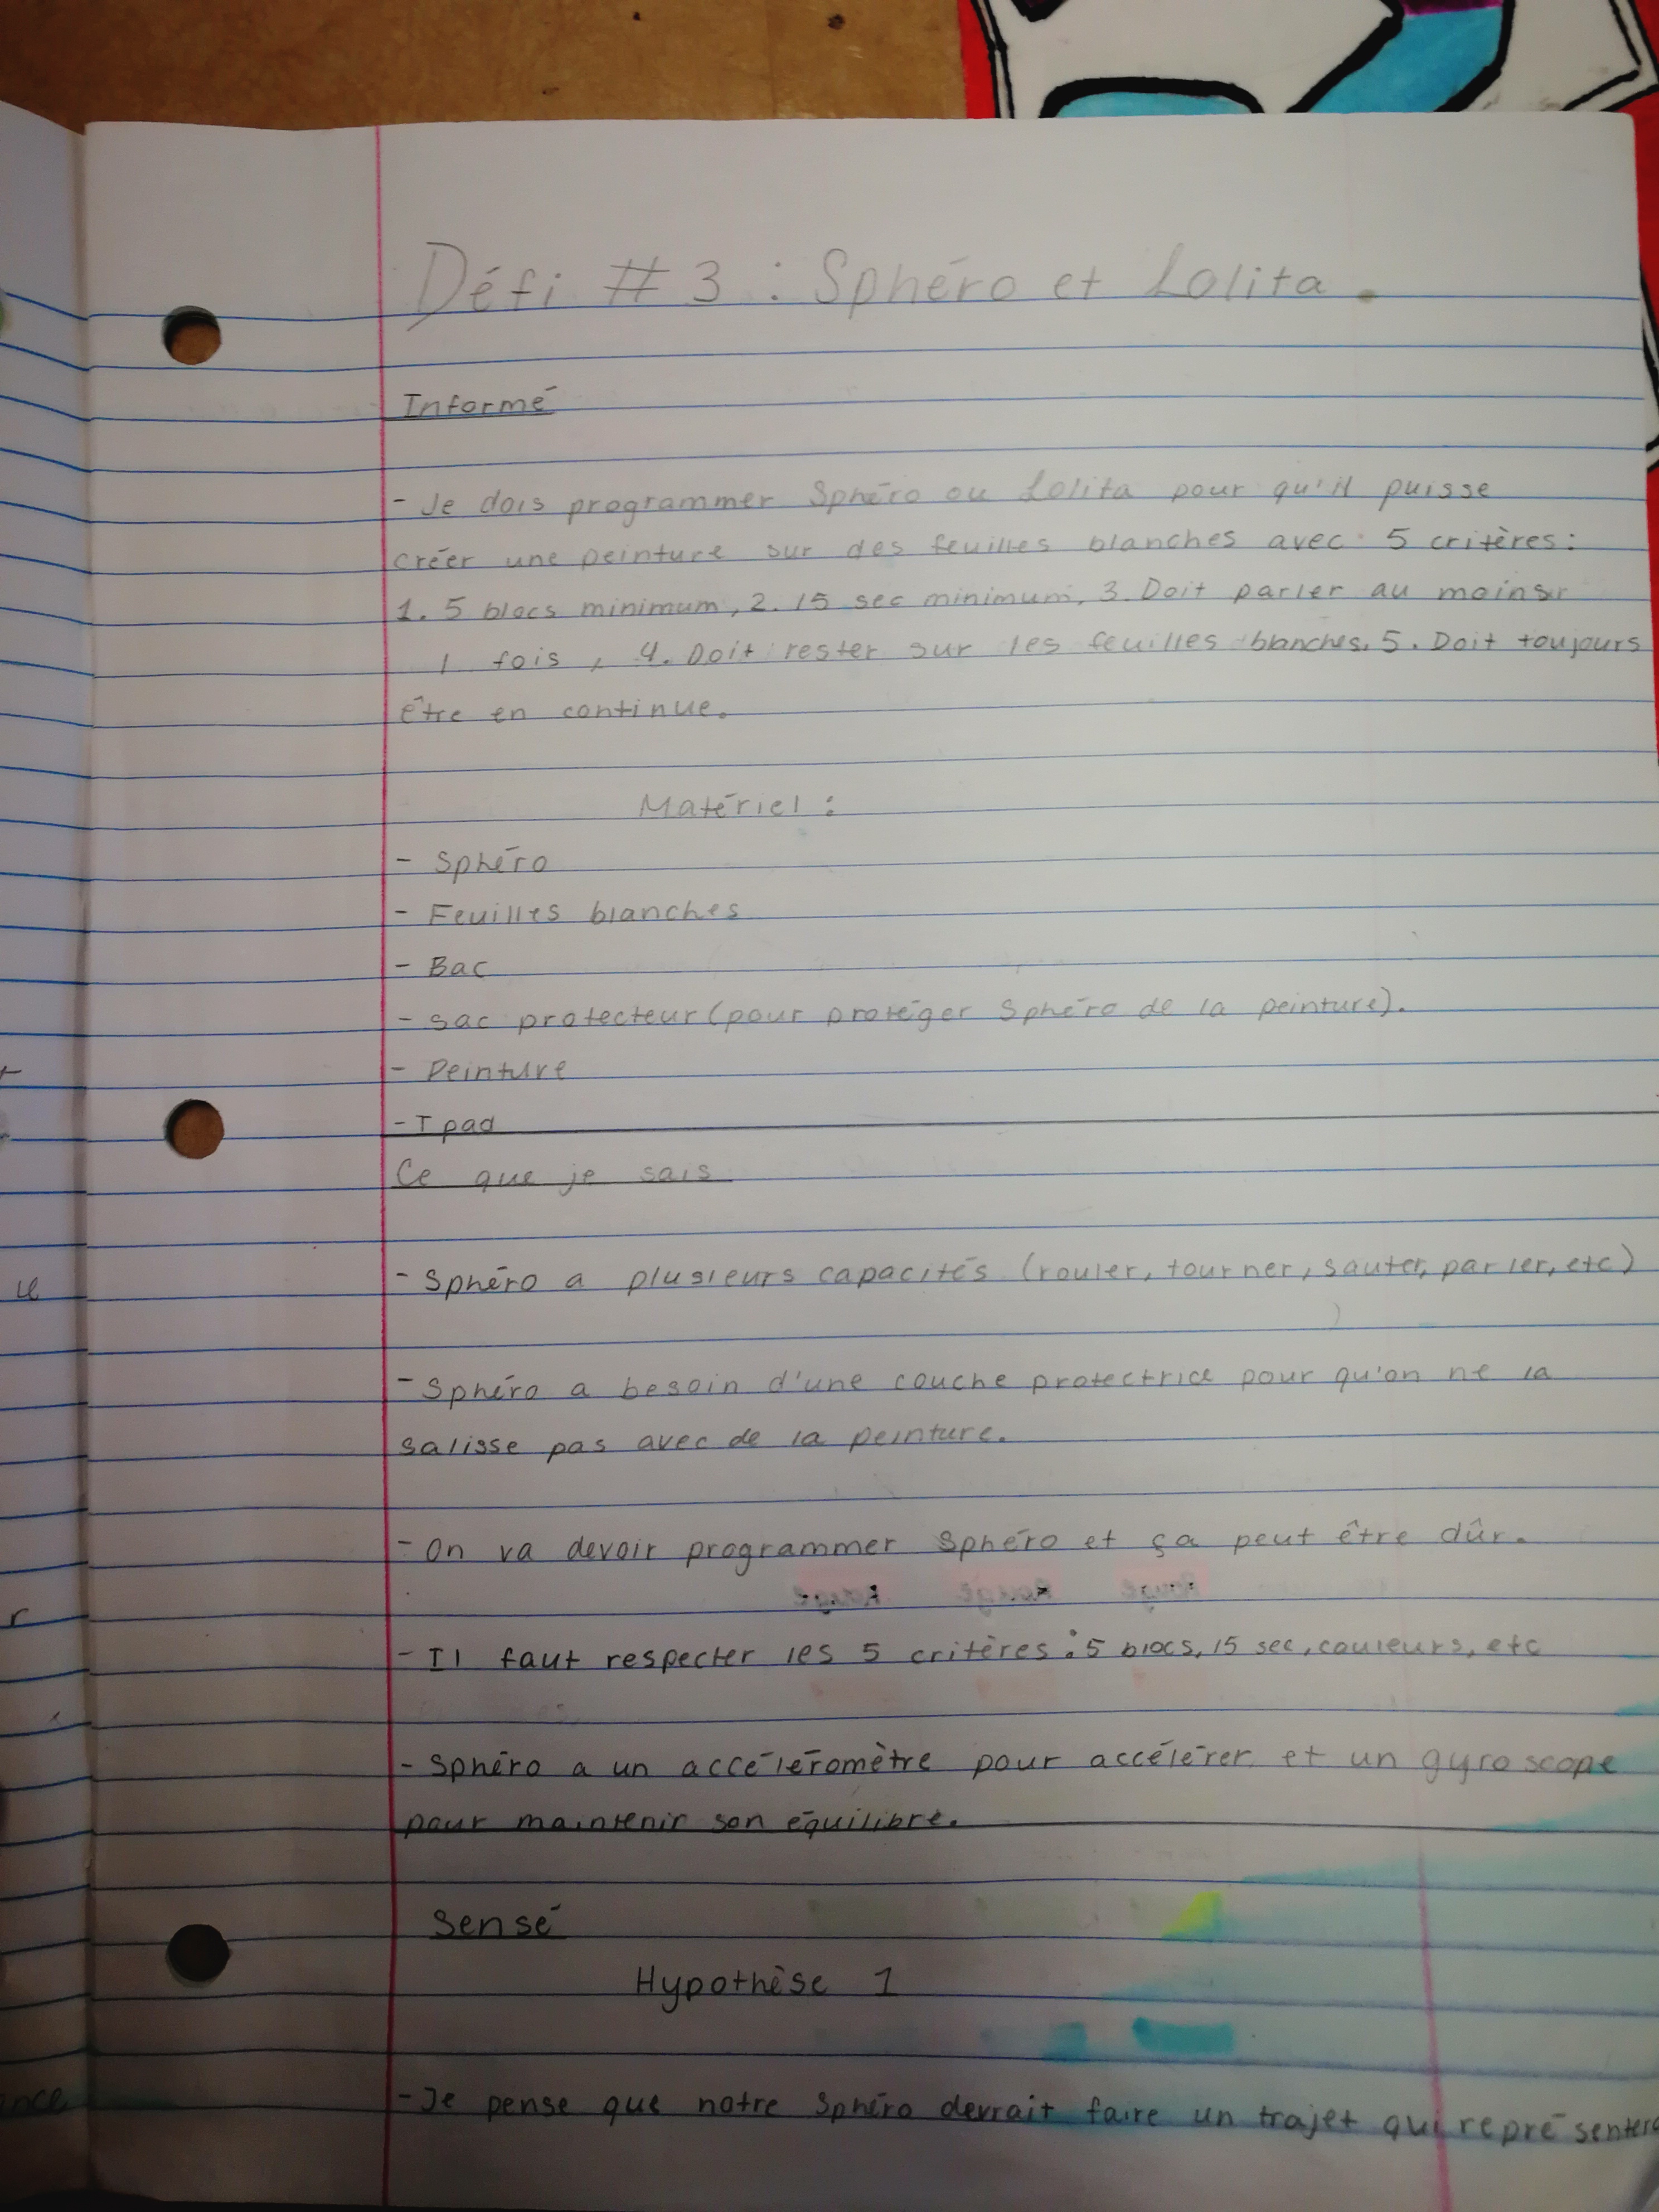 Défi # 3 : Sphéro et Lolita.
Informé
- Je dois programmer Sphéro ou Lolita pour qu'il puisse
créer une peinture sur des feuilles blanches avec 5 critères:
1. 5 blocs minimum, 2. 15 sec minimum, 3. Doit parler au moins
1 fois, 4. Doit rester sur les feuilles blanches. 5. Doit toujours
être en continue.
Matériel :
- Sphéro
- Feuilles blanches
- Bac
- sac protecteur (pour protéger Sphéro de la peinture).
- Peinture
- Ipad
Ce que je sais
- Sphéro a plusieurs capacités (rouler, tourner, sauter, parler, etc)
- Sphéro a besoin d'une couche protectrice pour qu'on ne la
salisse pas avec de la peinture.
- On va devoir programmer Sphéro et ça peut être dûr.
- Il faut respecter les 5 critères : 5 blocs, 15 sec, couleurs, etc
- Sphéro a un accéléromètre pour accélérer et un gyroscope
pour maintenir son équilibre.
Sensé
Hypothèse 1
- Je pense que notre Sphéro devrait faire un trajet qui représentera